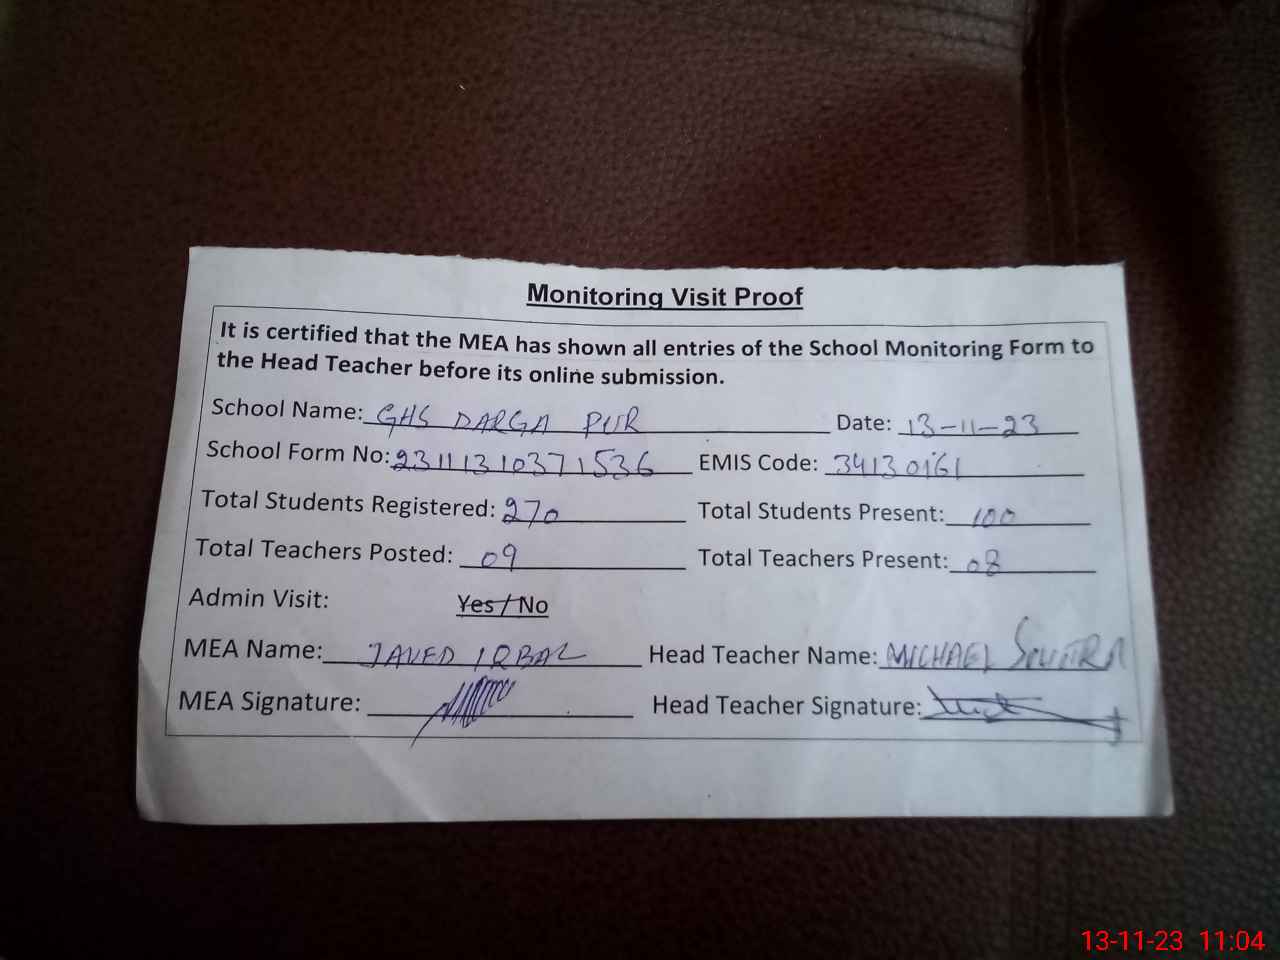 Monitoring Visit Proof
It is certified that the MEA has shown all entries of the School Monitoring Form to
the Head Teacher before its online submission.
School Name: GHS DARGA PUR Date: 13-11-23
School Form No: 23111310371536 EMIS Code: 34130161
Total Students Registered: 270 Total Students Present: 100
Total Teachers Posted: 09 Total Teachers Present: 08
Admin Visit: Yes / No
MEA Name: JAVED IQBAL Head Teacher Name: MICHAEL
MEA Signature: Head Teacher Signature:
13-11-23 11:04